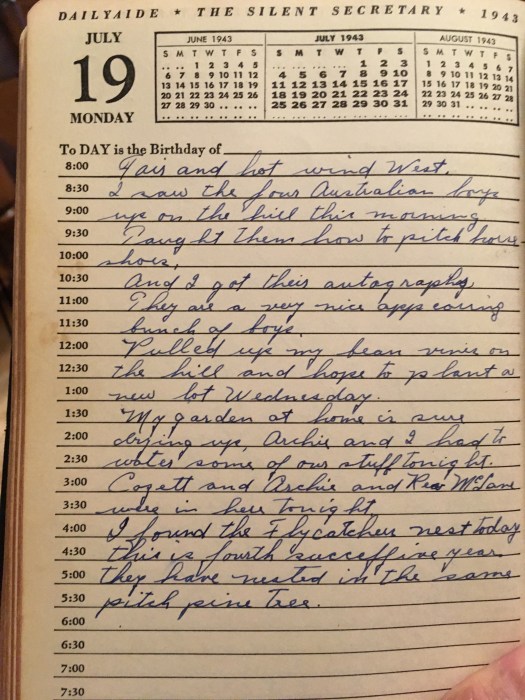 DAILYAIDE ★ THE SILENT SECRETARY ★ 1943
JULY
19
MONDAY
JUNE 1943
S M T W T F S
. . . . 1 2 3 4 5
6 7 8 9 10 11 12
13 14 15 16 17 18 19
20 21 22 23 24 25 26
27 28 29 30 . . . . . .
JULY 1943
S M T W T F S
. . . . . . . . 1 2 3
4 5 6 7 8 9 10
11 12 13 14 15 16 17
18 19 20 21 22 23 24
25 26 27 28 29 30 31
AUGUST 1943
S M T W T F S
1 2 3 4 5 6 7
8 9 10 11 12 13 14
15 16 17 18 19 20 21
22 23 24 25 26 27 28
29 30 31 . . . . . . . .
To DAY is the Birthday of
8:00 Fair and hot wind West.
8:30 I saw the four Australian boys
9:00 up on the hill this morning
9:30 Taught Them how to pitch horse
10:00 shoes,
10:30 And I got their autographs,
11:00 They are a very nice appearing
11:30 bunch of boys.
12:00 Pulled up my bean vines on
12:30 the hill and hope to plant a
1:00 new lot Wednesday.
1:30 My garden at home is sure
2:00 drying up, Archie and I had to
2:30 water some of our stuff tonight.
3:00 Cozett and Archie and Rev McLane
3:30 were in here tonight
4:00 I found the Flycatchers nest today
4:30 this is fourth successive year
5:00 they have nested in the same
5:30 pitch pine Tree.
6:00
6:30
7:00
7:30